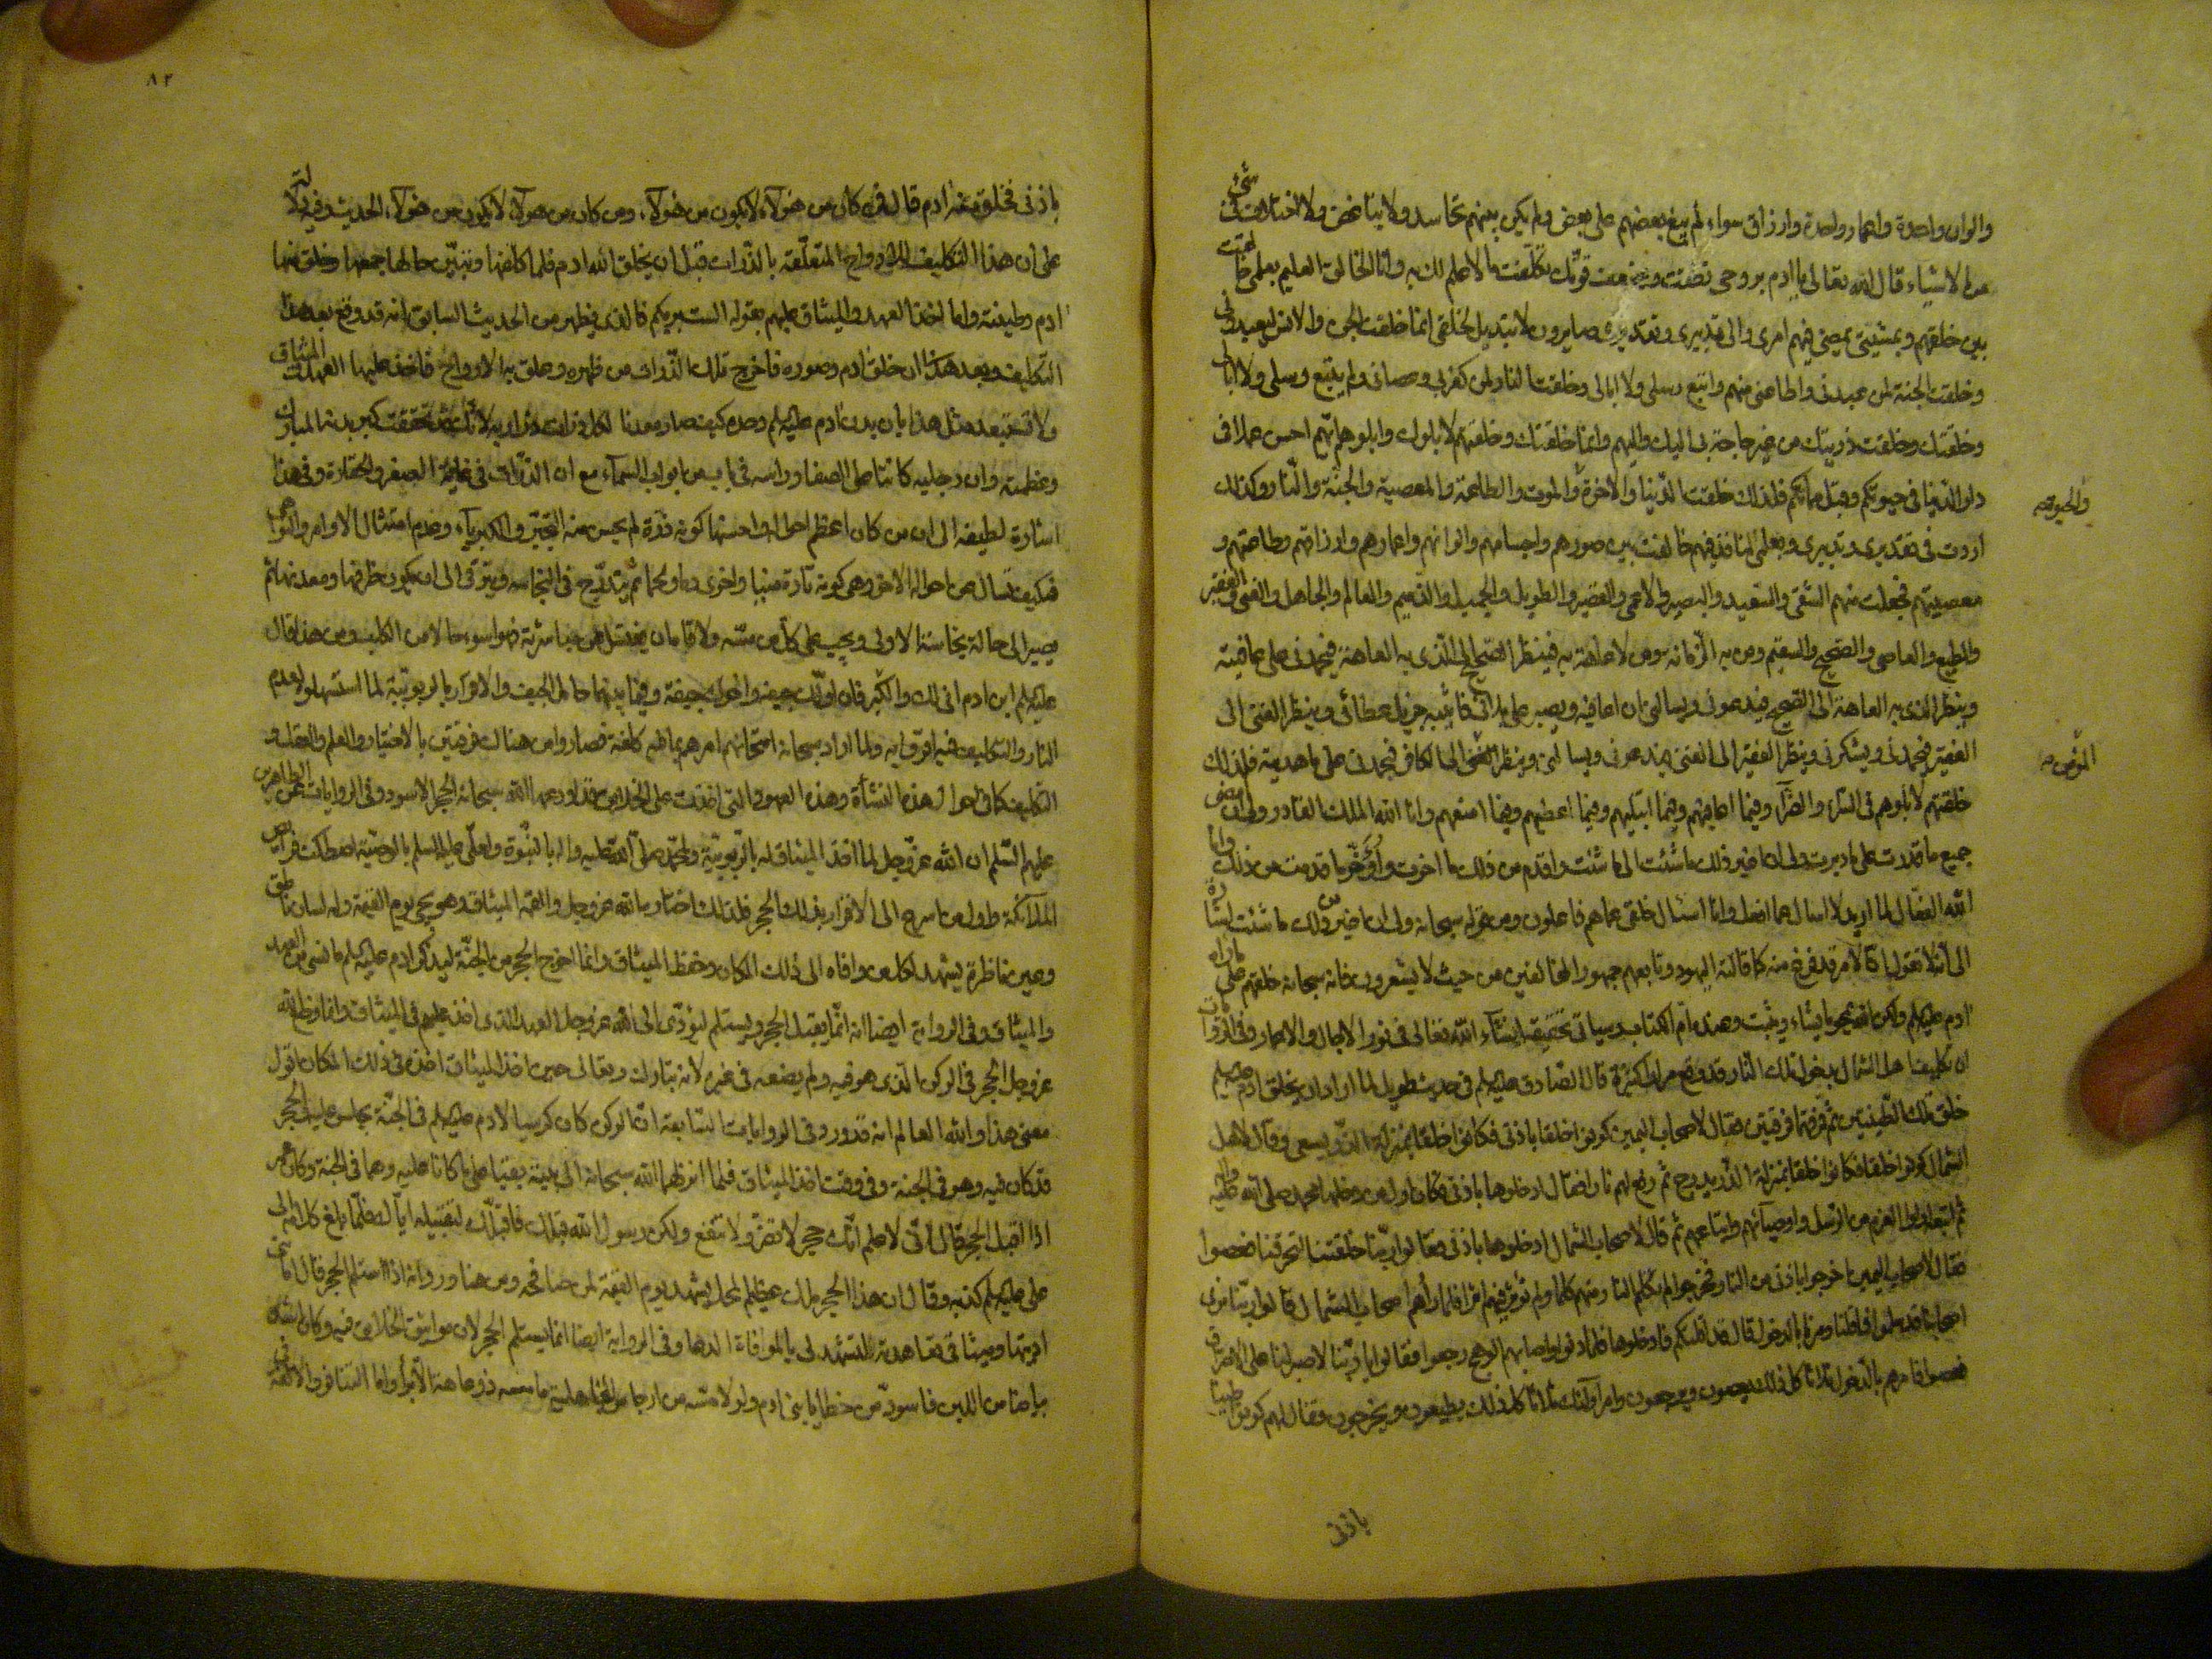 والوان واحدة واعمار واحدة وارزاق سواء لم يبغ بعضهم على بعض ولم يكن بينهم تحاسد ولا تباغض ولا اختلاف في شئ
من الاشياء قال الله تعالى يا ادم بروحى نطقت وبضعف قوتك تكلفت ما لا علم لك به وانا الخالق العليم بعلمى خالفت
بين خلقهم وبمشيتى يمضى فيهم امرى والى تدبيرى وتقديرى صايرون لا تبديل لخلقى انما خلقت الجن والانس ليعبدونى
وخلقت الجنة لمن عبدنى واطاعنى منهم واتبع رسلى ولا ابالى وخلقت النار لمن كفر بى وعصانى ولم يتبع رسلى ولا ابالى
وخلقتك وخلقت ذريتك من غير حاجة بى اليك واليهم وانما خلقتك وخلقتهم لابلوك وابلوهم ايهم احسن عملا فى
دار الدنيا فى حيوتكم وقبل مماتكم فلذلك خلقت الدنيا والاخرة والموت والطاعة والمعصية والجنة والنار وكذلك
والحيوة صح
اردت فى تقديرى وتدبيرى وبعلمى النافذ فيهم خالفت بين صورهم واجسامهم والوانهم واعمارهم وارزاقهم وطاعتهم و
معصيتهم فجعلت منهم الشقى والسعيد والبصير والاعمى والقصير والطويل والجميل والذميم والعالم والجاهل والغنى والفقير
والمطيع والعاصى والصحيح والسقيم ومن به الزمانة ومن لا عاهة به فينظر الصحيح الى الذى به العاهة فيحمدنى على عافيته
وينظر الذى به العاهة الى الصحيح فيدعونى ويسالنى ان اعافيه ويصبر على بلائى فاثيبه جزيل عطائى وينظر الغنى الى
الفقير فيحمدنى ويشكرنى وينظر الفقير الى الغنى فيدعونى ويسالنى وينظر الى الكافر فيحمدنى على ما هديته فلذلك
المؤمن صح
خلقتهم لابلوهم فى السراء والضراء وفيما اعافيهم وفيما ابتليهم وفيما اعطيهم وفيما امنعهم وانا الله الملك القادر ولى ان امضى
جميع ما قدرت على ما دبرت ولى ان اغير ذلك ما شئت الى ما شئت واقدم من ذلك ما اخرت واؤخر ما قدمت من ذلك وانا
الله الفعال لما اريد لا اسال عما افعل وانا اسال خلقى عما هم فاعلون ومن قوله سبحانه ولى ان اغير من ذلك ما شئت اشارة
الى ان لا تقول ان الامر قد فرغ منه كما قالته اليهود وتابعهم جمهور المخالفين من حيث لا يشعرون فانه سبحانه خلقهم على ما اراه
ادم عليه السلم ولكن الله يمحو ما يشاء ويثبت وعنده ام الكتاب وسياتى تحقيقه انشاء الله تعالى فى نور الاجال والاعمار وفى
ان تكليف اهل الشمال بدخول تلك النار قد وقع مرارا كثيرة قال الصادق عليه السلم فى حديث طويل لما اراد ان يخلق ادم عليه السلم
خلق تلك الطينتين ثم فرقهما فرقتين فقال لاصحاب اليمين كونوا خلقا باذنى فكانوا خلقا بمنزلة الذر يسعى وقال لاهل
الشمال كونوا خلقا فكانوا خلقا بمنزلة الذر يدرج ثم رفع لهم نارا فقال ادخلوها باذنى فكان اول من دخلها محمد صلى الله عليه واله
ثم اتبعه اولوا العزم من الرسل واوصيائهم واتباعهم ثم قال لاصحاب الشمال ادخلوها باذنى فقالوا ربنا خلقتنا لتحرقنا فعصوا
فقال لاصحاب اليمين اخرجوا باذنى من النار فخرجوا لم تكلم النار منهم كلما ولم تؤثر فيهم اثرا فلما راهم اصحاب الشمال قالوا ربنا نرى
اصحابنا قد سلموا فاقلنا ومرنا بالدخول قال قد اقلتكم فادخلوها فلما دنوا واصابهم الوهج رجعوا فقالوا يا ربنا لا صبر لنا على الاحتراق
فعصوا فامرهم بالدخول ثلاثا كل ذلك يعصون ويرجعون وامر اولئك ثلاثا كل ذلك يطيعون ويخرجون فقال لهم كونوا طينا
باذنى
٨٢
باذنى فخلق منه ادم قال فمن كان من هؤلاء لا يكون من هؤلاء ومن كان من هؤلاء لا يكون من هؤلاء الحديث وفيه دلالة
على ان هذا التكليف للارواح المتعلقة بالذرات قبل ان يخلق الله ادم فلما كلفها وتبين حالها جمعها وخلق منها
ادم وطينته واما اخذ العهد والميثاق عليهم بقوله الست بربكم فالذى يظهر من الحديث السابق انه قد وقع بعد هذا
التكليف وبعد هذا ان خلق ادم وصوره فاخرج تلك الذرات من ظهره وعلق به الارواح فاخذ عليها العهد والميثاق
ولا تستبعد مثل هذا بان بدن ادم عليه السلم وحده كيف صار معدنا لكل ذرات ذراريه لانك قد تحققت كبر بدنه المبارك
وعظمته وان رجليه كانتا على الصفا وراسه فى باب من ابواب السماء مع ان الذرات فى غاية الصغر والحقارة وفى هذا
اشارة لطيفة الى ان من كان اعظم احواله واحسنها كونه ذرة لم يحسن منه التجبر والكبرياء وعدم امتثال الاوامر والنواهى
فكيف تسال عن احواله الاخر وهى كونه تارة منيا واخرى دما ولحما ثم يتدرج فى النجاسة ويترقى الى ان يكون ظرفها ومعدنها ثم
يصير الى حالة نجاسته الاولى ويجب على كل من مسه ولاقاه ان يغتسل من مباشرته فهو اسوء حالا من الكلب ومن هذا قال
عليه السلم ابن ادم انى لك والكبر فان اولك جيفة واخرك جيفة وفيما بينهما حامل الجيف والاقرار بالربوبية لما استسهلوه لعدم
النار والتكليف فيه اقروا به ولما اراد سبحانه امتحانهم امرهم بما فيه كلفة فصاروا من هناك فرقتين بالاختيار والعلم والعقل و
التكليف كما فى احوال هذه النشأة وهذه العهود التى اخذت على الخلايق قد اودعها الله سبحانه الحجر الاسود وفى الروايات عن الطاهرين
عليهم السلم ان الله عز وجل لما اخذ الميثاق له بالربوبية ولمحمد صلى الله عليه واله بالنبوة ولعلى عليه السلم بالوصية اصطكت فرايص
الملائكة فاول من اسرع الى الاقرار بذلك الحجر فلذلك اختاره الله عز وجل والقمه الميثاق وهو يجئ يوم القيمة وله لسان ناطق
وعين ناظرة يشهد لكل من وافاه الى ذلك المكان وحفظ الميثاق وانما اخرج الحجر من الجنة ليذكر ادم عليه السلم ما نسى من العهد
والميثاق وفى الرواية ايضا انه انما يقبل الحجر ويستلم ليؤدى الى الله عز وجل العهد الذى اخذ عليهم فى الميثاق وانما وضع الله
عز وجل الحجر فى الركن الذى هو فيه ولم يضعه فى غيره لانه تبارك وتعالى حين اخذ الميثاق اخذه فى ذلك المكان اقول
معنى هذا والله العالم انه قد ورد فى الروايات السابقة ان الركن كان كرسيا لادم عليه السلم فى الجنة يجلس عليه الحجر
قد كان فيه وهو فى الجنة وفى وقت اخذ الميثاق فلما انزلهما الله سبحانه الى بيته بقيا على ما كانا عليه وهما فى الجنة وكان عمر
اذا قبل الحجر قال انى لاعلم انك حجر لا تضر ولا تنفع ولكن رسول الله قبلك فاقبلك لتقبيله اياك فلما بلغ كلامه الى
على عليه السلم كذبه وقال ان هذا الحجر ملك عظيم المحل يشهد يوم القيمة لمن صافحه ومن هنا ورد انه اذا استلم الحجر قال امانتى
اديتها وميثاقى تعاهدته لتشهد لى بالموافاة الدعاء وفى الرواية ايضا انما يستلم الحجر لان مواثيق الخلائق فيه وكان اشد
بياضا من اللبن فاسود من خطايا بنى ادم ولولا مسه من ارجاس الجاهلية ما مسه ذو عاهة الا برأ واما التنافر والالفة فى